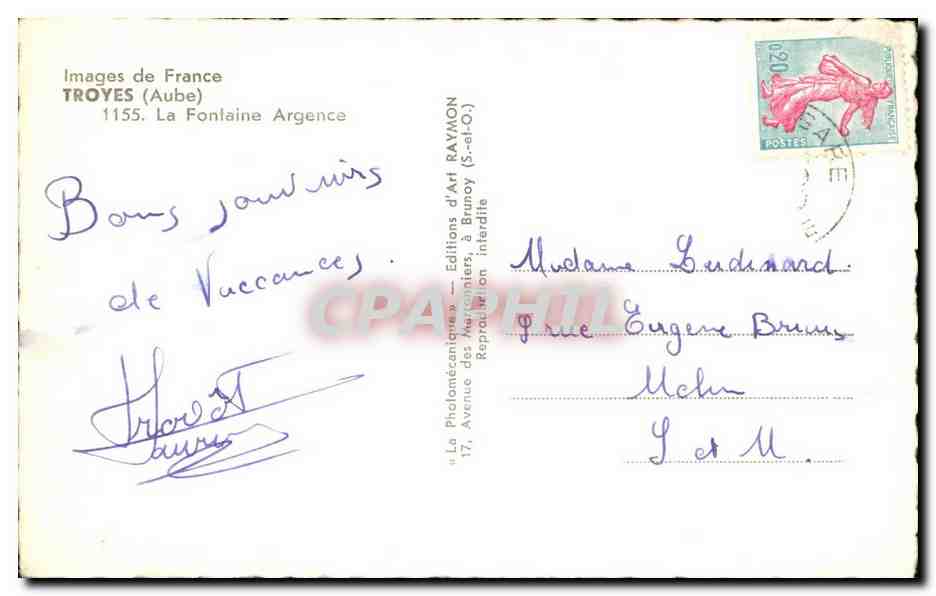 Images de France
TROYES (Aube)
1155. La Fontaine Argence
Bons souvenirs
de Vaccances.
« La Photomécanique » — Editions d'Art RAYMON
17, Avenue des Marronniers, à Brunoy (S.-et-O.)
Reproduction interdite
0,20
REPUBLIQUE FRANÇAISE
POSTES
GARE
CPAPHIL
Madame
rue Eugene
Melun
S et M.